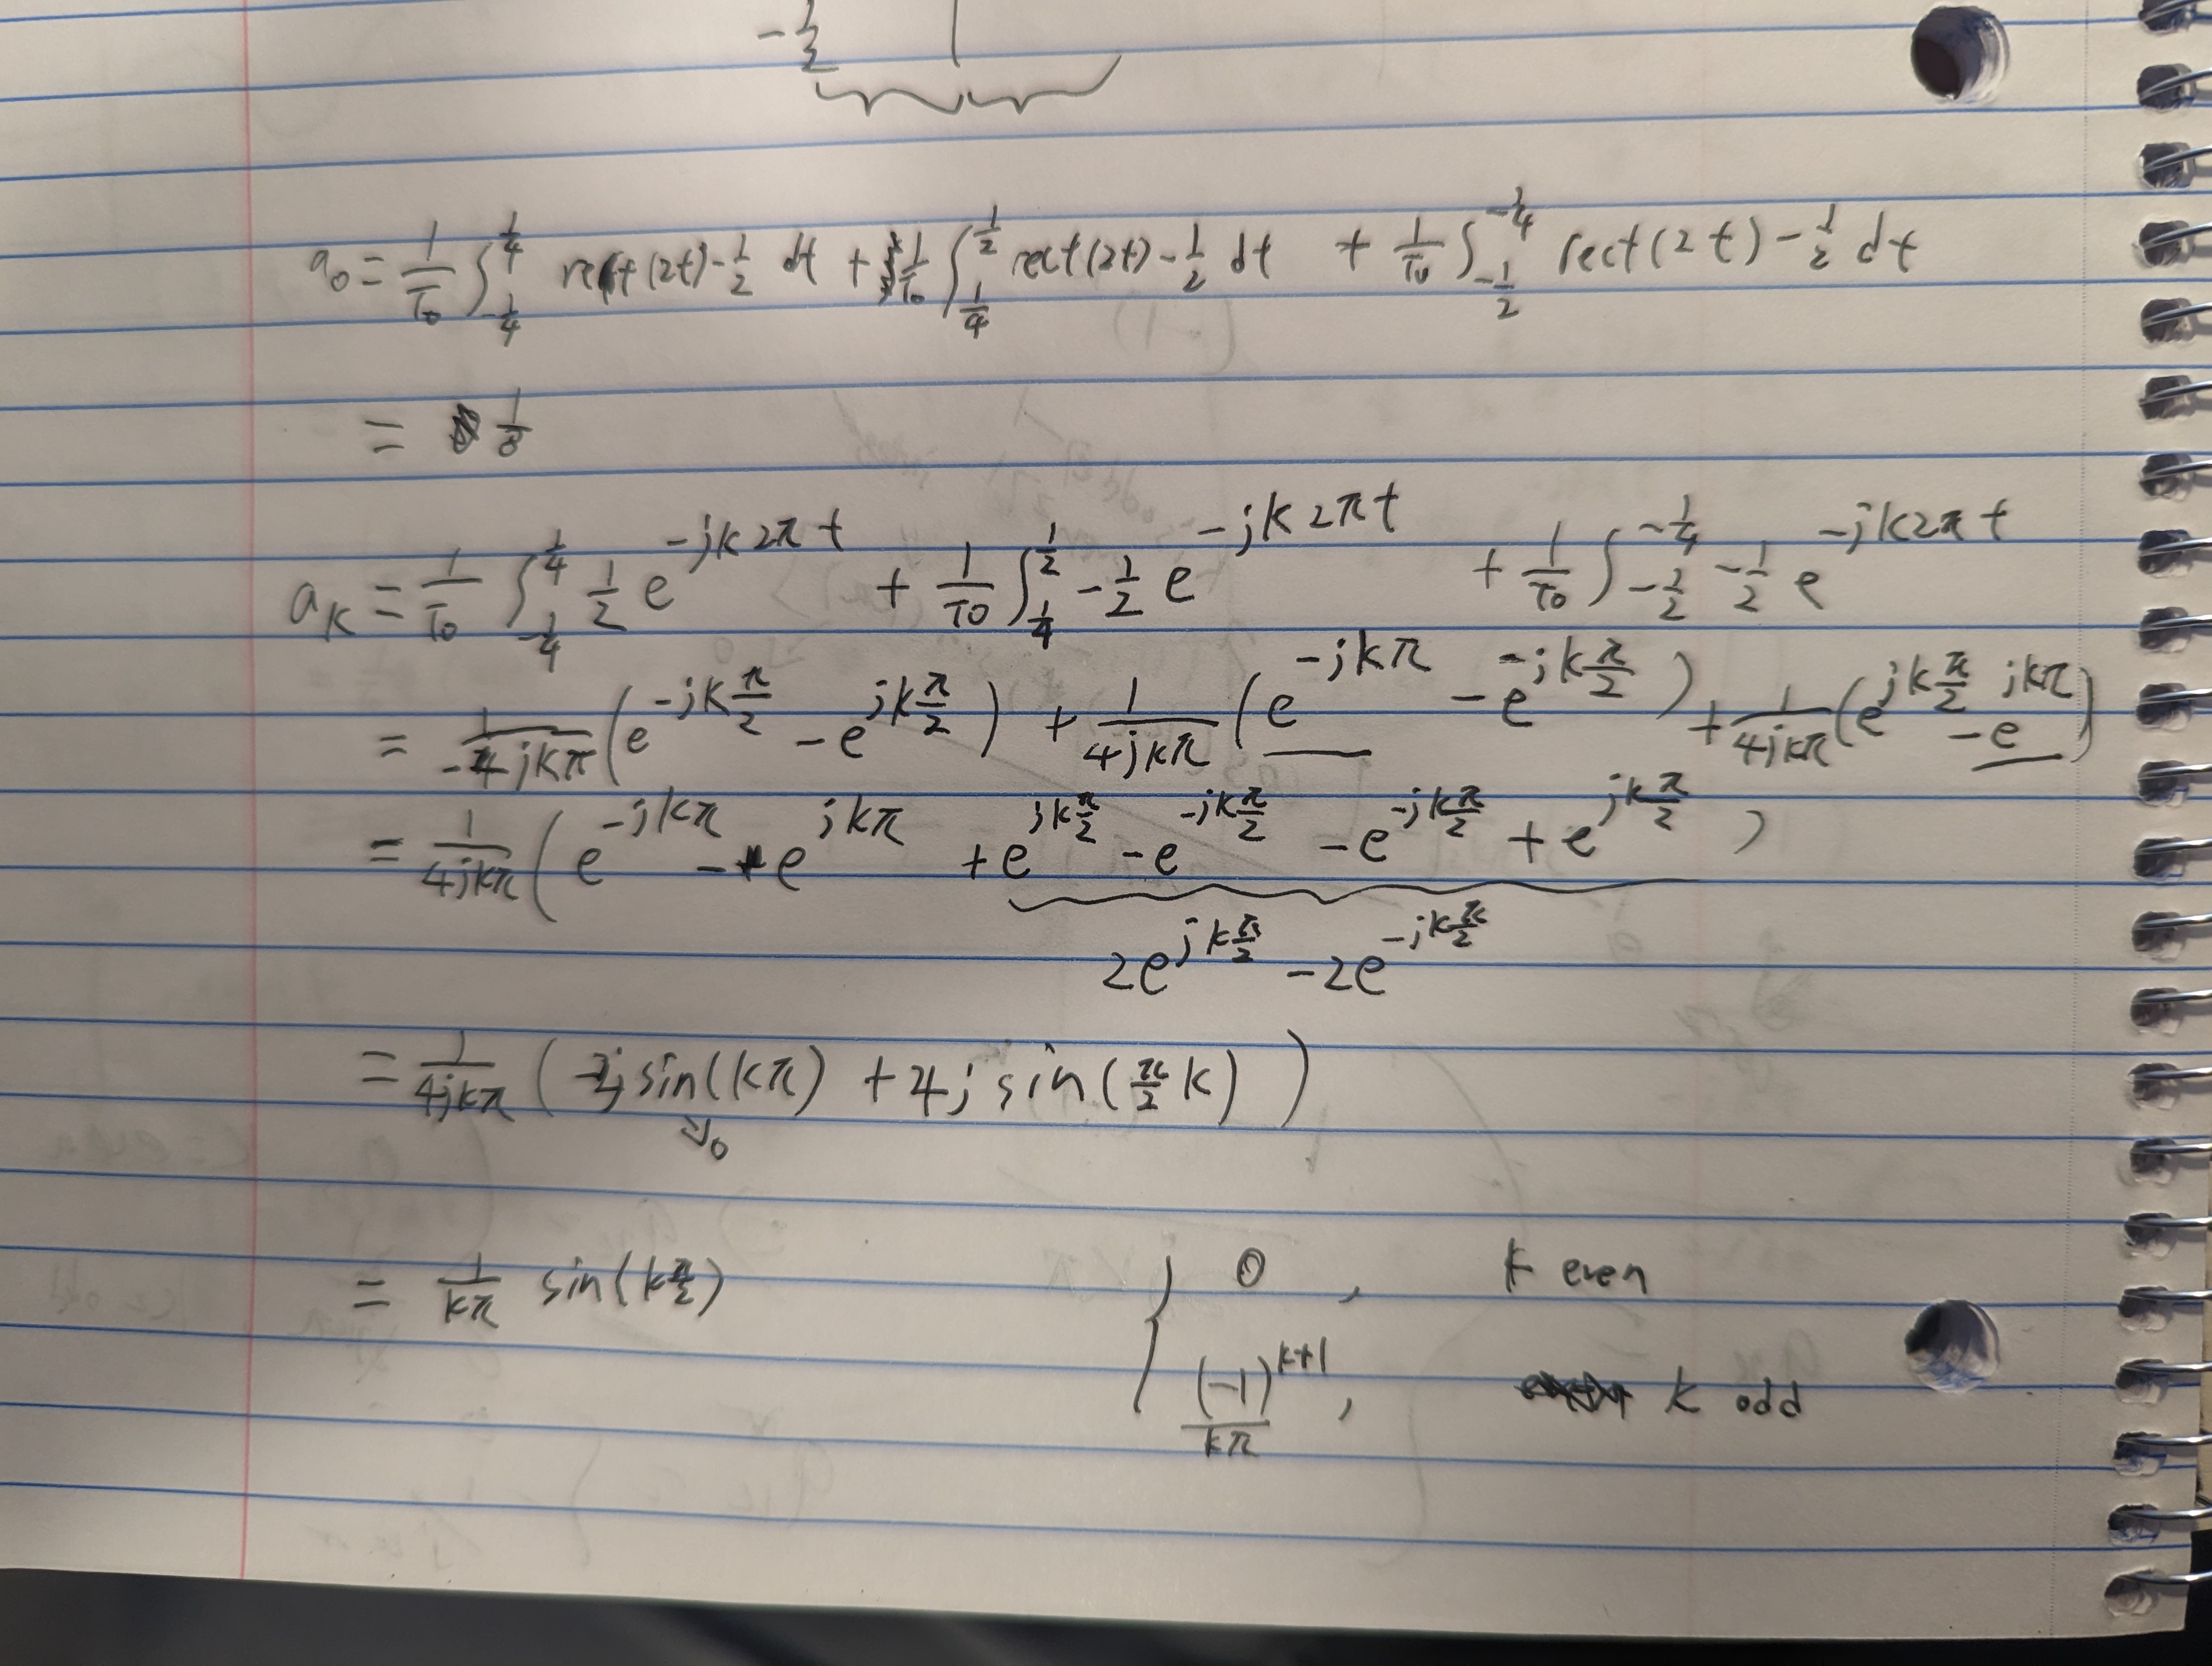 -1/2
a₀ = 1/T₀ ∫_{-1/4}^{1/4} rect(2t) - 1/2 dt + 1/T₀ ∫_{1/4}^{1/2} rect(2t) - 1/2 dt + 1/T₀ ∫_{-1/2}^{-1/4} rect(2t) - 1/2 dt
= 1/8
a_k = 1/T₀ ∫_{-1/4}^{1/4} 1/2 e^{-jk2πt} + 1/T₀ ∫_{1/4}^{1/2} -1/2 e^{-jk2πt} + 1/T₀ ∫_{-1/2}^{-1/4} -1/2 e^{-jk2πt}
= 1/(-4jkπ) (e^{-jkπ/2} - e^{jkπ/2}) + 1/(4jkπ) (e^{-jkπ} - e^{-jkπ/2}) + 1/(4jkπ) (e^{jkπ/2} - e^{jkπ})
= 1/(4jkπ) (e^{-jkπ} - e^{jkπ} + e^{jkπ/2} - e^{-jkπ/2} - e^{-jkπ/2} + e^{jkπ/2})
2e^{jkπ/2} - 2e^{-jkπ/2}
= 1/(4jkπ) (-2j sin(kπ) + 4j sin(π/2 k))
↘0
= 1/(kπ) sin(kπ/2) { 0, k even
(-1)^{k+1}/(kπ), k odd